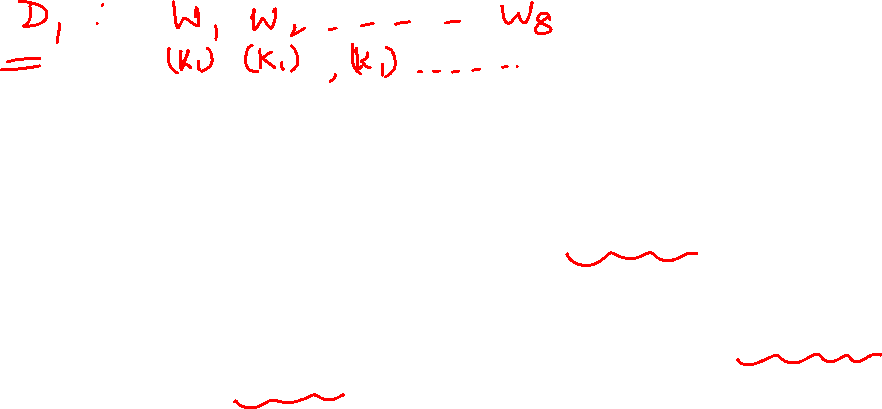 D₁ : W₁ W₂ - - - - - W₈
(K₁) (K₁) , (K₁) - - - - - -